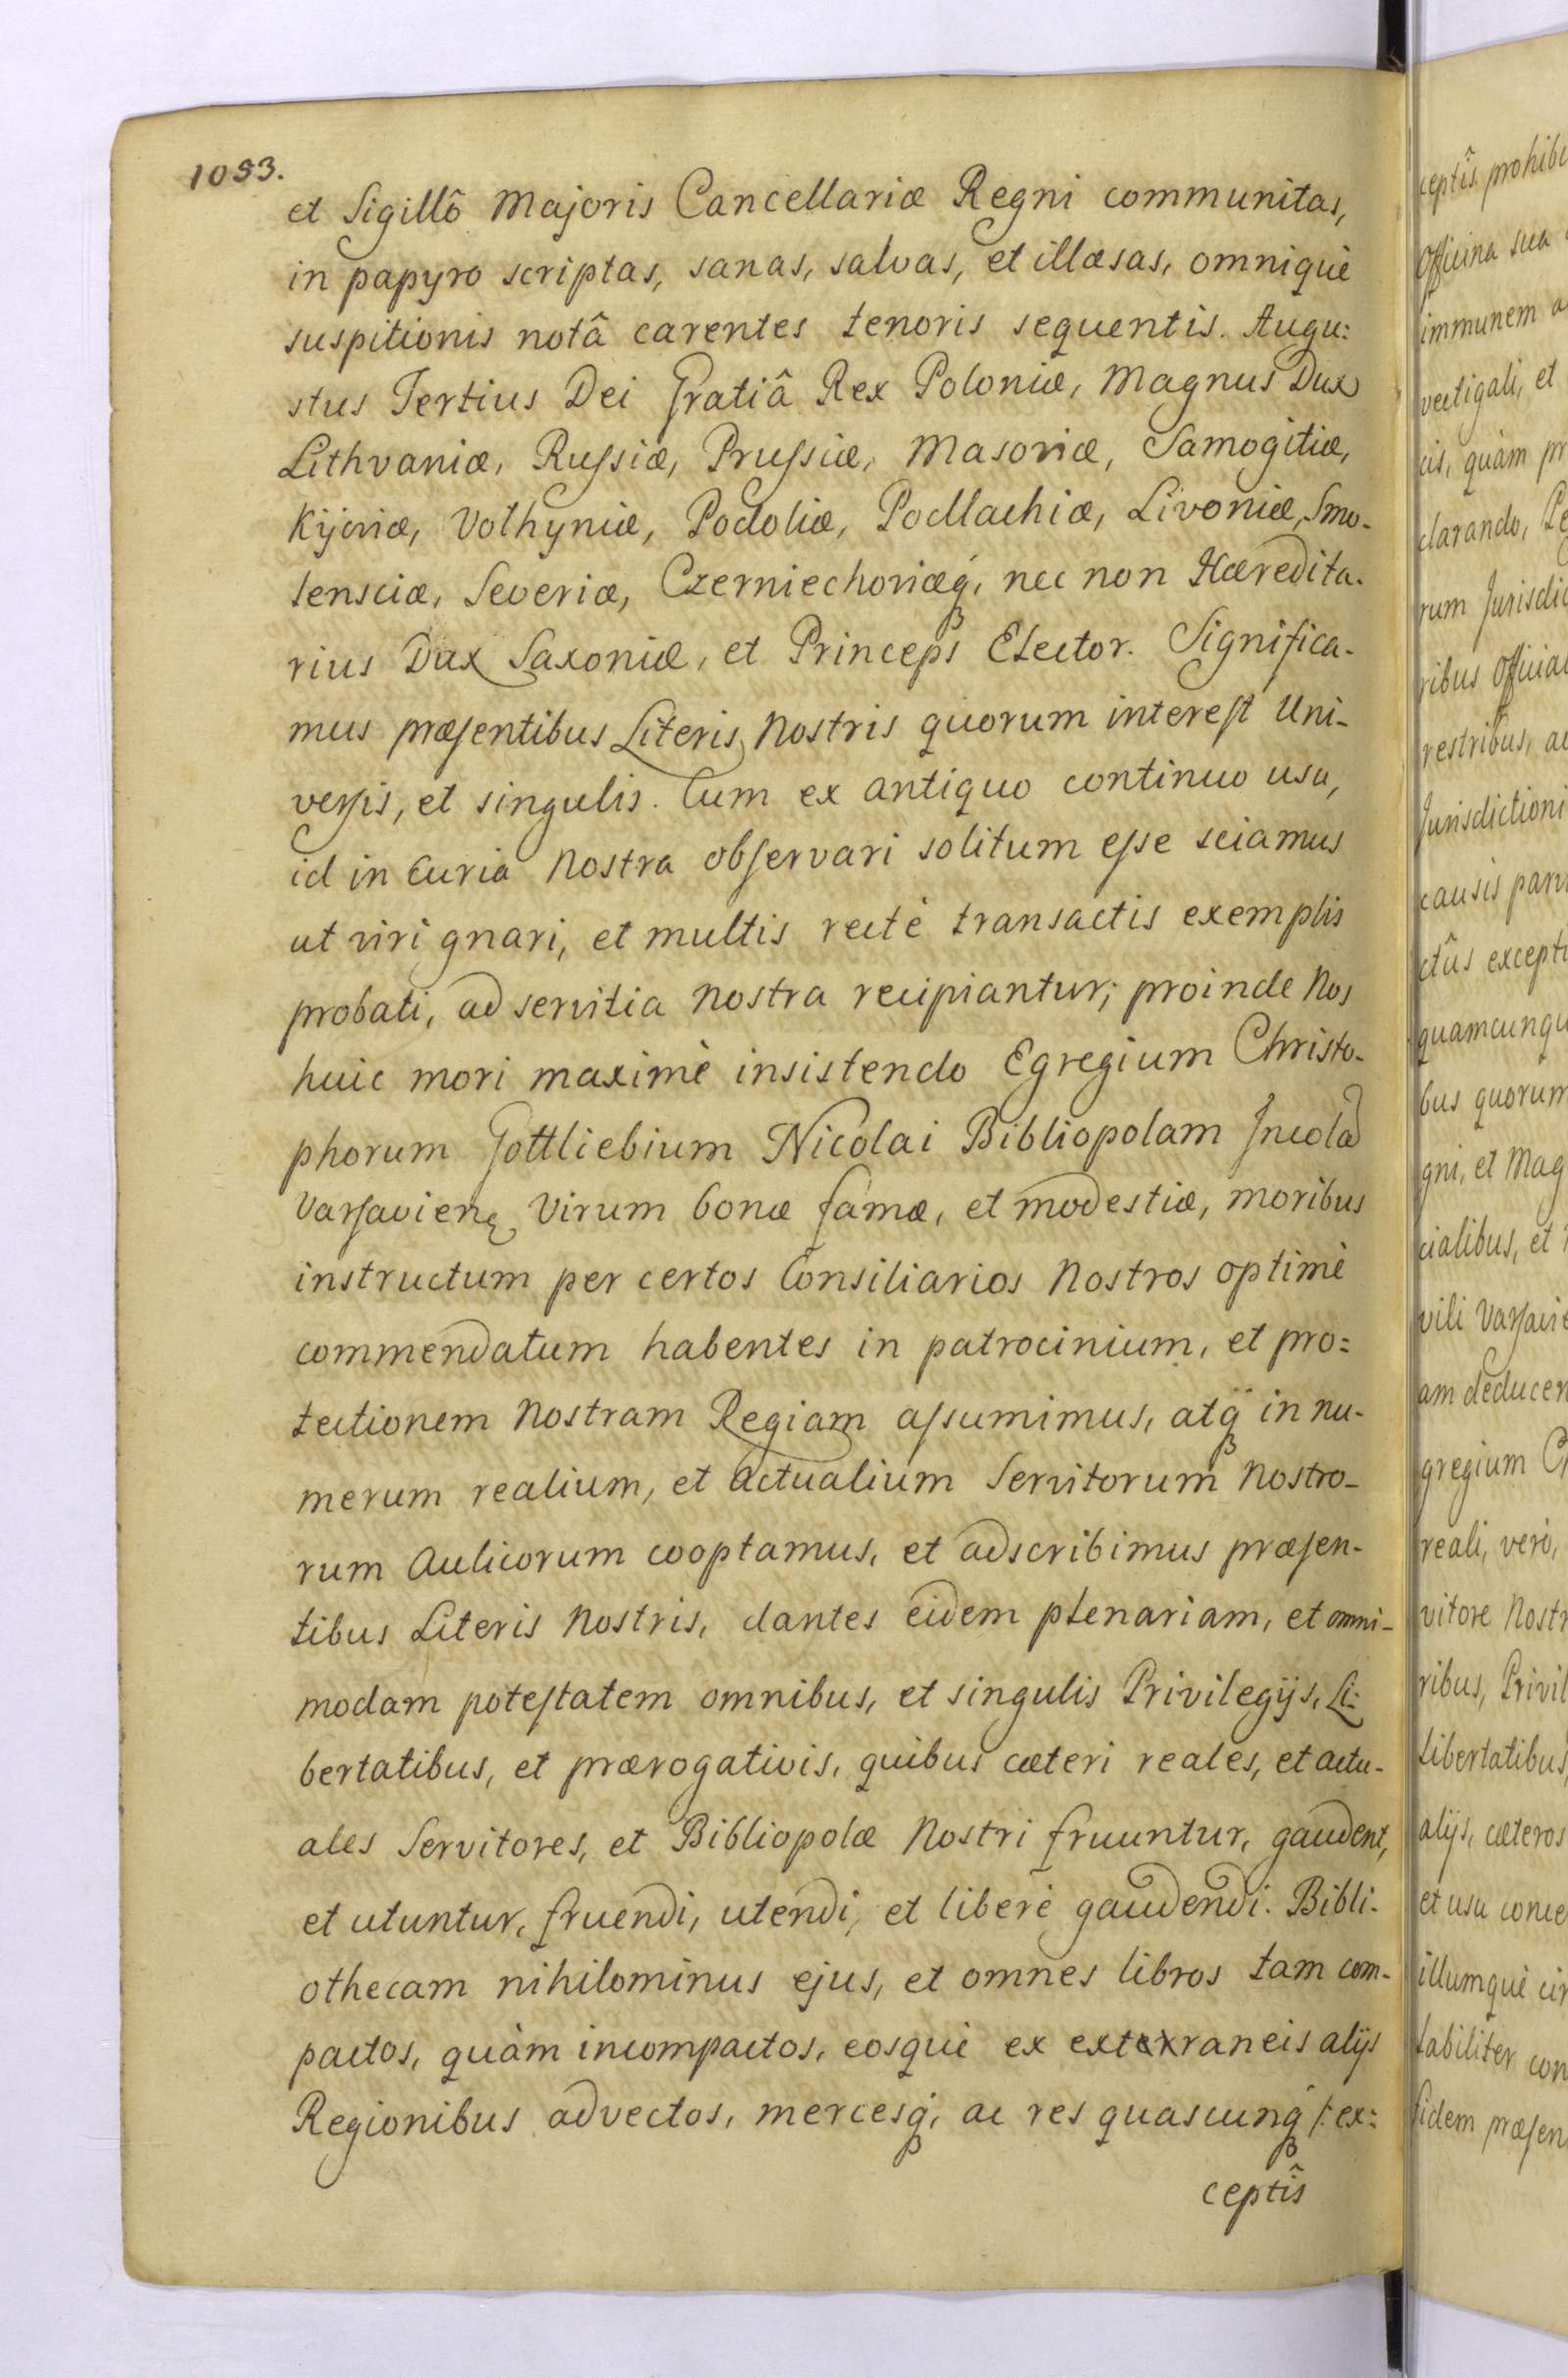 1053.
et Sigillô Majoris Cancellariæ Regni communitas,
in papyro scriptas, sanas, salvas, et illæsas, omniquè
suspitionis notâ carentes tenoris sequentis. Augu:
stus Tertius Dei Gratiâ Rex Poloniæ, Magnus Dux
Lithvaniæ, Ruſsiæ, Pruſsiæ, Masoviæ, Samogitiæ,
Kijoviæ, Volhyniæ, Podoliæ, Podlachiæ, Livoniæ, Smo-
lensciæ, Severiæ, Czerniechoviæq́, nec non Hæredita-
rius Dux Saxoniæ, et Princeps Elector. Significa-
mus præſentibus Literis Nostris quorum intereſt Uni-
verſis, et singulis. Cum ex antiquo continuo usu,
id in Curia Nostra obſervari solitum eſse sciamus
ut viri gnari, et multis rectè transactis exemplis
probati, ad servitia nostra recipiantur; proinde Nos
huic mori maximè insistendo Egregium Christo-
phorum Gottliebium Nicolai Bibliopolam Incolã
Varſavienę Virum bonæ famæ, et modestiæ, moribus
instructum per certos Consiliarios Nostros optimè
commendatum habentes in patrocinium, et pro:
tectionem Nostram Regiam aſsumimus, atq́ in nu-
merum realium, et actualium Servitorum Nostro-
rum Aulicorum cooptamus, et adscribimus præſen-
tibus Literis Nostris, dantes eidem plenariam, et omni-
modam poteſtatem omnibus, et singulis Privilegijs, Li:
bertatibus, et prærogativis, quibus cæteri reales, et actu-
ales Servitores, et Bibliopolæ Nostri fruuntur, gaudent,
et utuntur, fruendi, utendi, et liberè gaudendi. Bibli-
othecam nihilominus ejus, et omnes libros tam com-
pactos, quàm incompactos, eosquè ex extexraneis alijs
Regionibus advectos, mercesq́, ac res quascunq́ /: ex:
ceptîs
ceptîs prohibi
Officina sua
immunem a
vectigali, et
cis, quàm pr
clarando,
rum Jurisdic
ribus Officia
restribus, ac
Jurisdictioni
causis parv
ctûs excepti
quamcunqu
bus quorum
gni, et Mag
cialibus, et
vili Varſavie
am deducen
gregium
reali, verò,
vitore Nostr
ribus, Privil
libertatibus,
alijs, cæteros
et usu conce
illumquè cir
tabiliter con
fidem præſen